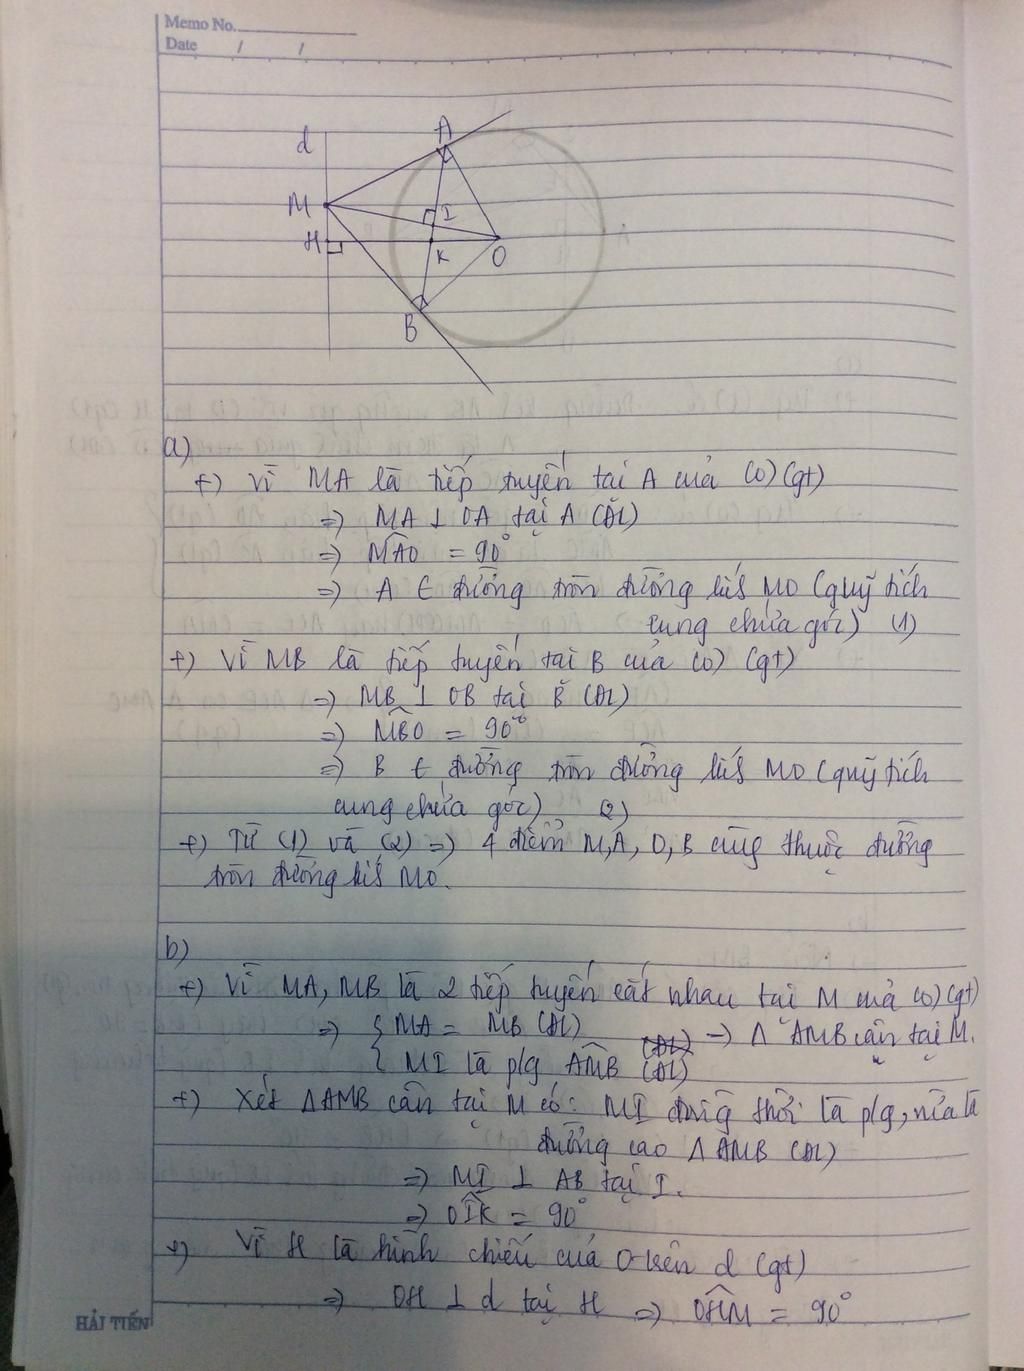 Memo No.
Date / /
d
A
M
I
H
K
O
B
a)
+) Vì MA là tiếp tuyến tại A của (O) (gt)
=) MA ⊥ OA tại A (ĐL)
=) MÂO = 90°
=) A ∈ đường tròn đường kính MO (quỹ tích
cung chứa góc) (1)
+) Vì MB là tiếp tuyến tại B của (O) (gt)
=) MB ⊥ OB tại B (ĐL)
=) MBO = 90°
=) B ∈ đường tròn đường kính MO (quỹ tích
cung chứa góc) (2)
+) Từ (1) và (2) =) 4 điểm M, A, O, B cùng thuộc đường
tròn đường kính MO.
b)
+) Vì MA, MB là 2 tiếp tuyến cắt nhau tại M của (O) (gt)
=) { MA = MB (ĐL) =) Δ AMB cân tại M.
{ MI là p/g AMB (ĐL)
+) Xét Δ AMB cân tại M có: MI đồng thời là p/g, vừa là
đường cao Δ AMB (ĐL)
=) MI ⊥ AB tại I.
=) OIK = 90°
+) Vì H là hình chiếu của O trên d (gt)
=) OH ⊥ d tại H =) OHM = 90°
HẢI TIẾN